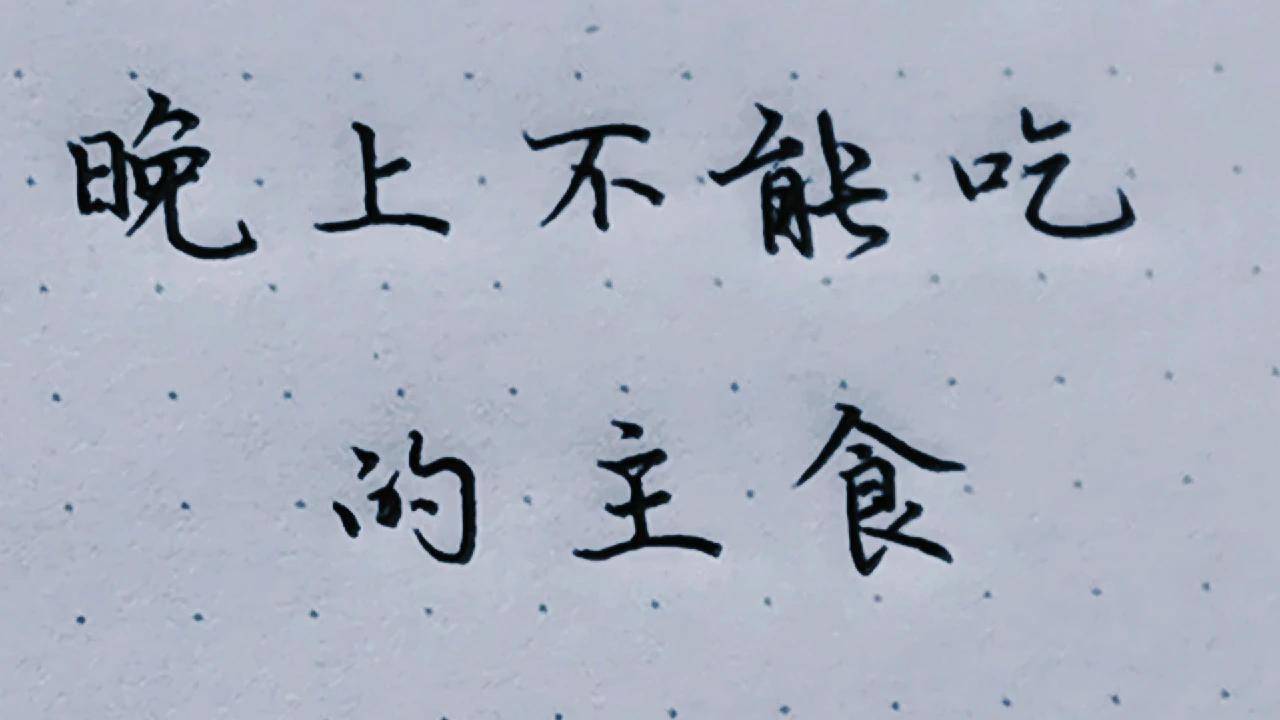 晚上不能吃
的主食